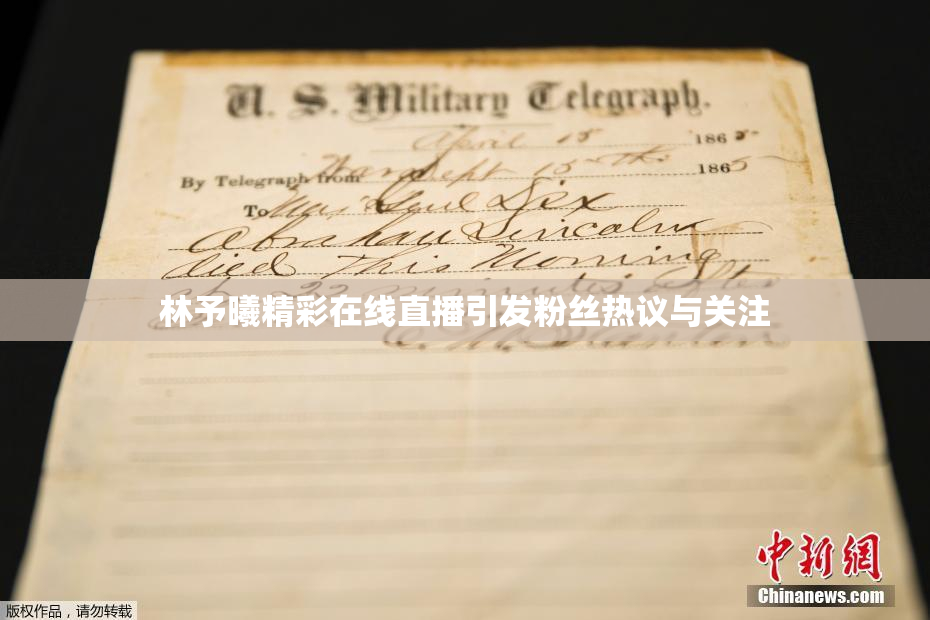 U. S. Military Telegraph.
April 15 1865.
By Telegraph from War Dept 15th 1865
To Maj Genl Dix
Abraham Lincoln
died This Morning
at 22 minutes after
林予曦精彩在线直播引发粉丝热议与关注
E. M. Stanton
中新网
Chinanews.com
版权作品,请勿转载